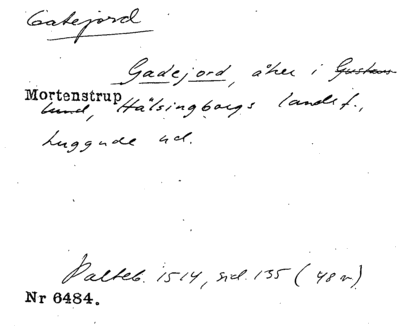 Gatejord
Gadejord, åker i Gustavs-
Mortenstrup
lund, Hälsingborgs landsf.,
Luggude hd.
Palteb. 1514, sid. 135 (48 v)
Nr 6484.